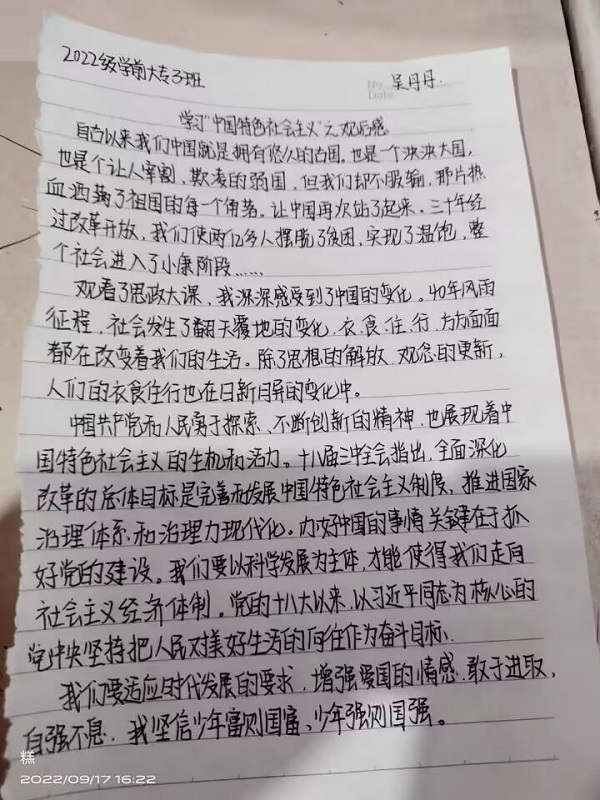 2022级学前大专3班
No.
Date
吴丹丹
学习"中国特色社会主义"之观后感
自古以来我们中国就是拥有悠久的古国。也是一个泱泱大国,
也是个让人宰割,欺凌的弱国,但我们却不服输,那片热
血洒满了祖国的每一个角落。让中国再次站了起来。三十年经
过改革开放,我们使两亿多人摆脱了贫困,实现了温饱,整
个社会进入了小康阶段……
观看了思政大课,我深深感受到了中国的变化。40年风雨
征程,社会发生了翻天覆地的变化,衣食住行,方方面面
都在改变着我们的生活。除了思想的解放、观念的更新,
人们的衣食住行也在日新月异的变化中。
中国共产党和人民勇于探索、不断创新的精神,也展现着中
国特色社会主义的生机和活力。十八届三中全会指出,全面深化
改革的总体目标是完善和发展中国特色社会主义制度,推进国家
治理体系和治理力现代化。办好中国的事情关键在于抓
好党的建设。我们要以科学发展为主体,才能使得我们走向
社会主义经济体制。党的十八大以来,以习近平同志为核心的
党中央坚持把人民对美好生活的向往作为奋斗目标.
我们要适应时代发展的要求,增强爱国的情感,敢于进取,
自强不息.我坚信少年富则国富、少年强则国强。
糕
2022/09/17 16:22